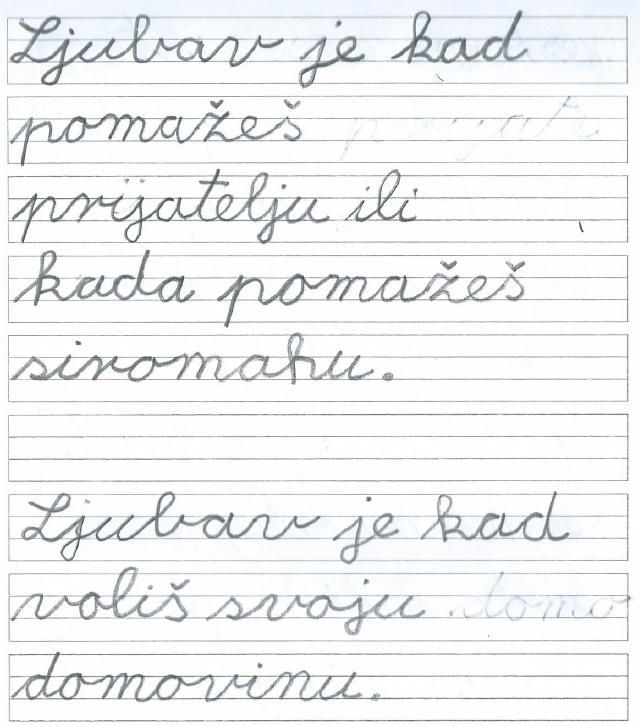 Ljubav je kad
pomažeš
prijatelju ili
kada pomažeš
siromahu.
Ljubav je kad
voliš svoju
domovinu.